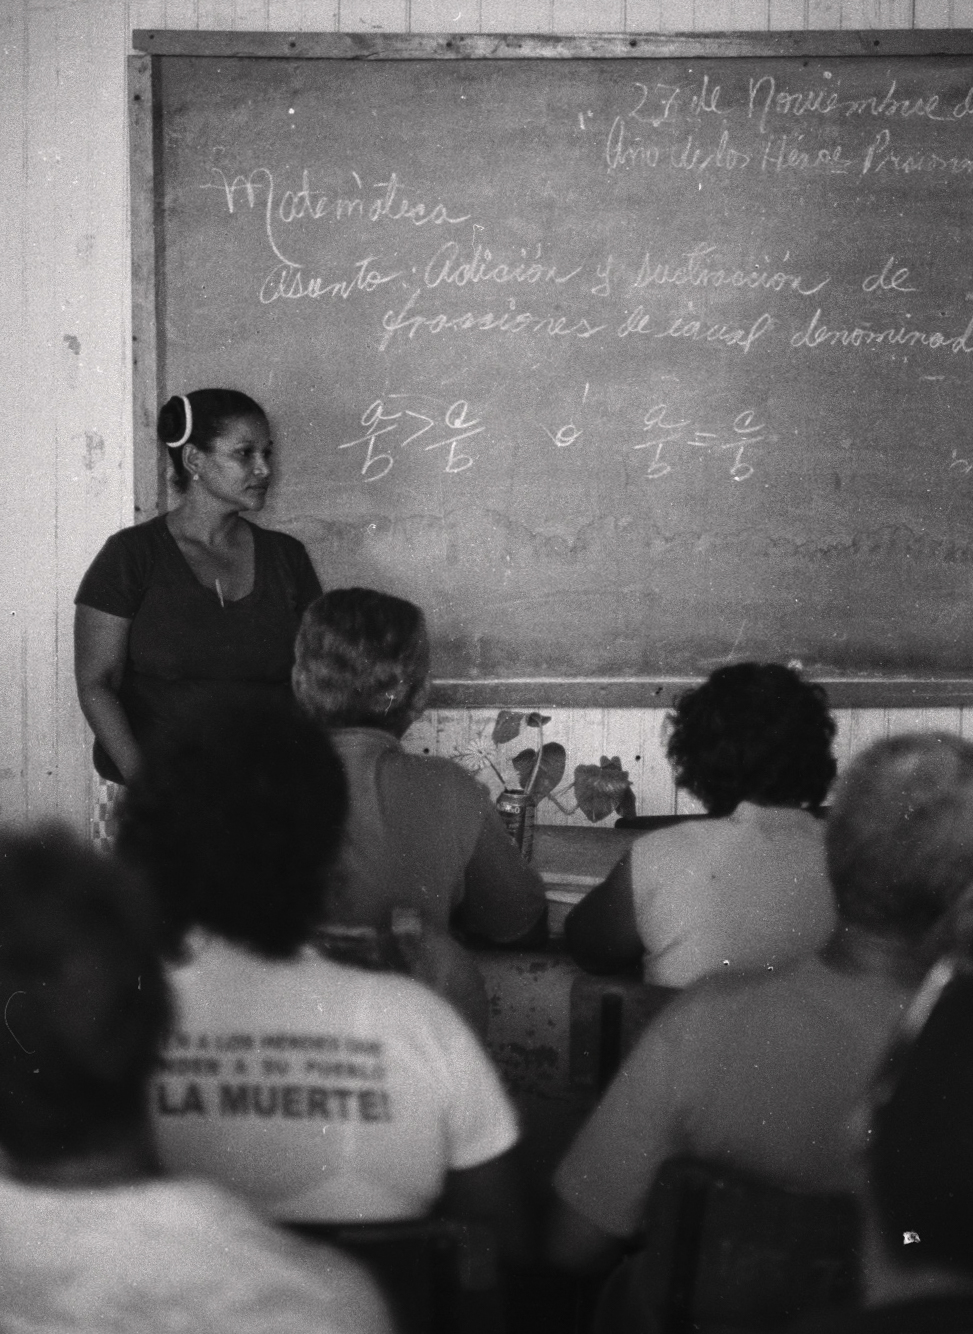 27 de Noviembre d
"Año de los Héroe Prisione
Matemàteca
Asunto: Adición y sustracción de
frassiones de igual denominad
a/b > a/b ó a/b = a/b
N A LOS HEROES QUE
NDER A SU PUEBLO
LA MUERTE!